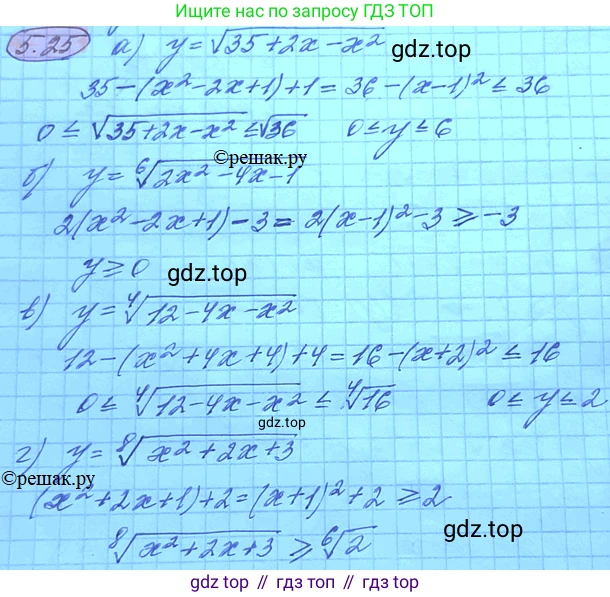 Ищите по запросу ГДЗ ТОП
5.25 а) y = √(35+2x-x²)
35-(x²-2x+1)+1=36-(x-1)² ≤ 36
0 ≤ √(35+2x-x²) ≤ √36 0 ≤ y ≤ 6
©решак.ру
б) y = ⁶√(2x²-4x-1)
2(x²-2x+1)-3=2(x-1)²-3 ≥ -3
y ≥ 0 gdz.top
в) y = ⁴√(12-4x-x²)
12-(x²+4x+4)+4=16-(x+2)² ≤ 16
0 ≤ ⁴√(12-4x-x²) ≤ ⁴√16 0 ≤ y ≤ 2
gdz.top
г) y = ⁸√(x²+2x+3)
©решак.ру
(x²+2x+1)+2=(x+1)²+2 ≥ 2
⁸√(x²+2x+3) ≥ ⁶√2 gdz.top
gdz.top // гдз.топ // gdz.top